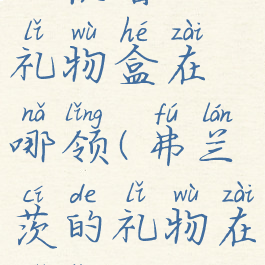 lǐ wù hé zài
礼物盒在
nǎ lǐng fú lán
哪领(弗兰
cí de lǐ wù zài
茨的礼物在